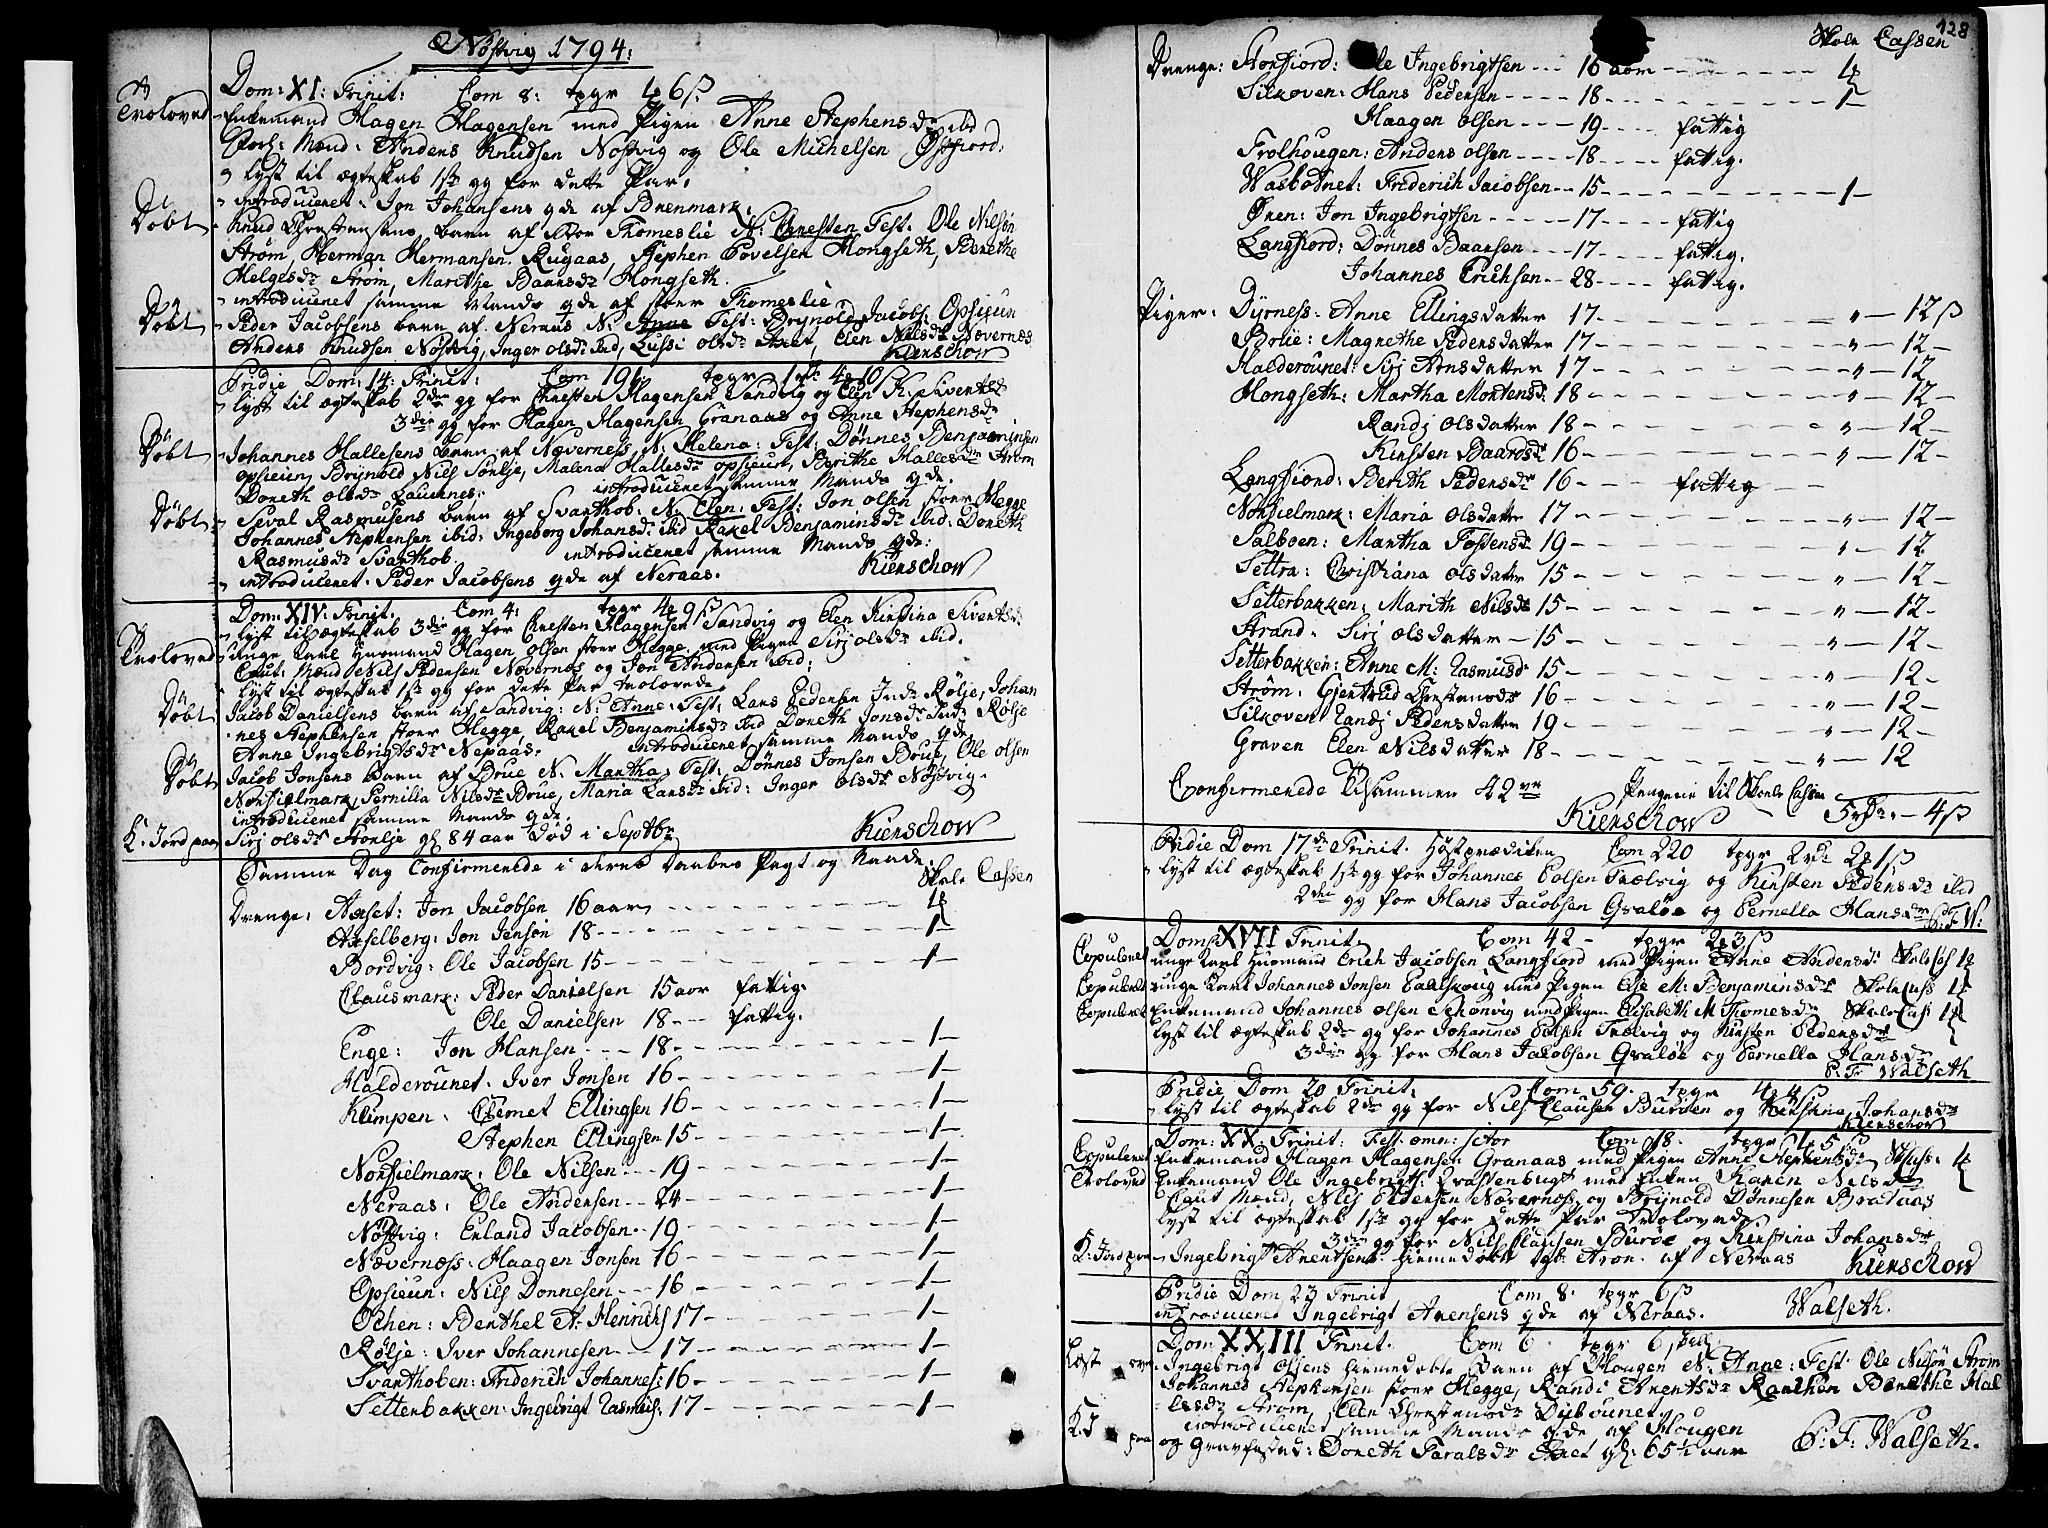 Nöstvig 1794:
Dom: XI: Trinit: Com 8: tpgr 4 6 ß
Troloved Enkemand Hagen Hagensen med Pigen Anne Stephensdr ibd
Forl: Mænd: Anders Knudsen Nöstvig og Ole Michelsen
lyst til ægteskab 1ste gg for dette Par.
introduceret: Jon Johansens qde af Brenmark.
Döbt Knud Christensens barn af stor Thomeslie N: Chresten Test. Ole Nilsön
Strøm, Herman Hermansen Rugaas, Stephen Povelsen Hongseth, Berethe
Helgesdr Strøm, Marithe Baarsdr Hongseth.
introduceret samme Mands qde af stoer Thomeslie
Döbt Peder Jacobsens barn af Neraas N: Anne Test: Brynold Jacobs: Opsieun
Anders Knudsen Nöstvig, Inger olsdr ibid, Lussi olsdr, Elen Nilsdr Nevernes
Kierschow
Pridie Dom: 14: Trinit: Com 191
lyst til ægteskab 2den gg for Chresten Hagensen Sandvig og Elen K: Sivertsdr
3die gg for Hagen Hagensen Granaas og Anne Stephensdr
Döbt Johannes Hallesens barn af Neverness N: Helena: Test: Dønnes Benjaminsen
opsieun, Brynold Nils Sørlje, Malena Hallesdr opsieun, Berithe Hallesdr Strøm
Doreth olsdr Lauernes. introduceret samme Mands qde.
Döbt Seval Rasmusens barn af Svarthob: N: Elen: Test: Jon olsen stoer Hegge
Johannes Stephensen ibid: Ingeborg Johansdr: ibid Rakel Benjaminsdr ibid: Doreth
Rasmusdr Svarthob. introduceret samme Mands qde:
introduceret: Peder Jacobsens qde af Neraas. Kierschow
Dom: XIV: Trinit. Com 4: tpgr 4 9 ß
lyst til ægteskab 3die gg for Chresten Hagensen Sandvig og Elen Kirstina Sivertsdr:
Troloved unge Karl Huusmand Hagen olsen stoer Hegge med Pigen Sirj olsdr ibid.
Caut: Mænd Nils Pedersen Nevernes og Jon Andersen ibid:
lyst til ægteskab 1ste gg for dette Par trolovede
Döbt Jacob Danielsens barn af Sandvig: N: Anne: Test: Lars Pedersen Indr Rølje, Johan
nes Stephensen stoer Hegge, Rakel Benjaminsdr ibid Doreth Jonsdr Indr Rølje
Anne Ingebrigtsdr Nepaas. introduceret samme Mands qde
Döbt Jacob Jonsens Barn af Brue N: Martha: Test: Dønnes Jonsen Brue, Ole olsen
Norsielmark, Pernilla Nilsdr Brue, Maria Larsdr ibid: Inger olsdr Nöstvig.
introduceret samme Mands qde.
K: Jord paa Sirj olsdr Storlje gl 84 aar död i Septbr Kierschow
Samme Dag Confirmerede i deres daabes Pagt og Naade
Skole Cassen
Drenge: Axset: Jon Jacobsen 16 aar
Axselberg: Jon Jensön 18 1
Bordvig: Ole Jacobsen 15 1
Clausmark: Peder Danielsen 15 aar fattig.
Ole Danielsen 18 fattig.
Enge: Jon Hansen 18 1
Halderounet. Iver Jonsen 16 1
Klimpen: Clemet Ellingsen 16 1
Stephen Ellingsen 15 1
Norsielmark: Ole Nilsen 19 1
Neraas: Ole Andersen 24 1
Nöstvig: Erland Jacobsen 19 1
Nevernæss: Haagen Jonsen 16 1
Opsieun: Nils Donnesen 16 1
Ochen: Benthel A: Henrichs 17 1
Rølje: Iver Johannesen 17 1
Svarthoben: Friderich Johannes: 16 1
Setterbakken: Ingebrigt Rasmus: 17 1
128
Skole Cassen
Drenge: Storfiord: Ole Ingebrigtsen 16 aar
Silkoven: Hans Pedersen 18 1
Haagen olsen 19 fattig
Trolhougen: Anders olsen 18 fattig.
Wasbotnet: Friderich Jacobsen 15 1
Ören: Jon Ingebrigtsen 17 fattig
Langfiord: Donnes Baarsen 17 fattig.
Johannes Erichsen 28 fattig.
Piger: Dyrness: Anne Ellingsdatter 17 12 ß
Brlie: Magrethe Pedersdatter 17 12
Halderounet: Sirj Arnsdatter 17 12
Hongseth: Martha Mortensd: 18 12
Randj olsdatter 18 12
Kirsten Baardsdr 16 12
Langfiord: Berith Pedersdr 16 fattig
Norsielmark: Maria olsdatter 17 12
Salboen: Martha Tostensdr 19 12
Settra: Christiana olsdatter 15 12
Setterbakken: Marith Nilsdr 15 12
Strand: Sirj olsdatter 15 12
Setterbakken: Anne M: Rasmusdr 15 12
Strøm: Gjertrud Chrestensdr 16 12
Silkoven: Randj Pedersdatter 19 12
Graven Elen Nilsdatter 18 12
Confirmerede tilsammen 42 Pengene til Skole Cassen
Kierschow 5 rdr 4 ß
Pridie Dom 17de Trinit. Høstprædiken Com 220 tpgr 2 rdr 2 1 ß
lyst til ægteskab 1ste gg for Johannes Colsen Trælvig og Kirsten Pedersdr ibid
2den gg for Hans Jacobsen Graløe og Pernella Hansdr P: F: W:
Dom: XVII Trinit. Com 42 - tpgr 2 3 ß
Copuleret unge Karl Huusmand Erich Jacobsen Langfiord med Pigen Anne Andersdr
Copuleret unge Karl Johannes Jonsen med Pigen Else M: Benjaminsdr Skole Cass
Copuleret Enkemand Johannes olsen Schonvig med Pigen Elisabeth M Thomesdr Skole Cass
lyst til ægteskab 2den gg for Johannes Colsen Trælvig og Kirsten Pedersdr
3die gg for Hans Jacobsen Graløe og Pernella Hansdr
P: F: Walseth
Pridie Dom 20 Trinit: Com 59. tpgr 4 4 ß
lyst til ægteskab 2den gg for Nils Clausen Burøen og Kirstina Johansdr
Kierschow
Dom: XX. Trinit: Fest: omn: sctor Com 18. tpgr 4 5 ß
Copuleret Enkemand Hagen Hagensen Granaas med Pigen Anne Stephensdr
Trolovede Enkemand Ole Ingebrigts: med Enken Karen Nilsdr
Caut Mænd, Nils Pedersen Nevernæss og Brynold Dønnesen Brataas
lyst til ægteskab 1ste gg for dette Par Trolovede
3die gg for Nils Clausen Burøe og Kirstina Johansdr
K: Jord paa Ingebrigt Arentsens hiemedøbte Aron af Neraas Kierschow
Pridie Dom 23 Trinit Com 8. tpgr 6 ß
introduceret Ingebrigt Arensens qde af Neraas. Walseth.
Dom XXIII Trinit. Com 6 tpgr 6 skell
Ingebrigt Olsens hiemedøbte Barn af Hougen N: Anne: Test. Ole Nilsön Strøm
Johannes Stephensen stoer Hegge, Randi Arentsdr Berethe Hal
lesdr Strøm, Elen Chrestensdr Dybounet.
introduceret samme Mands qde af Hougen
K: J paa og Gravfested: Doreth Taralsdr gl: 65½ aar P: F: Walseth.